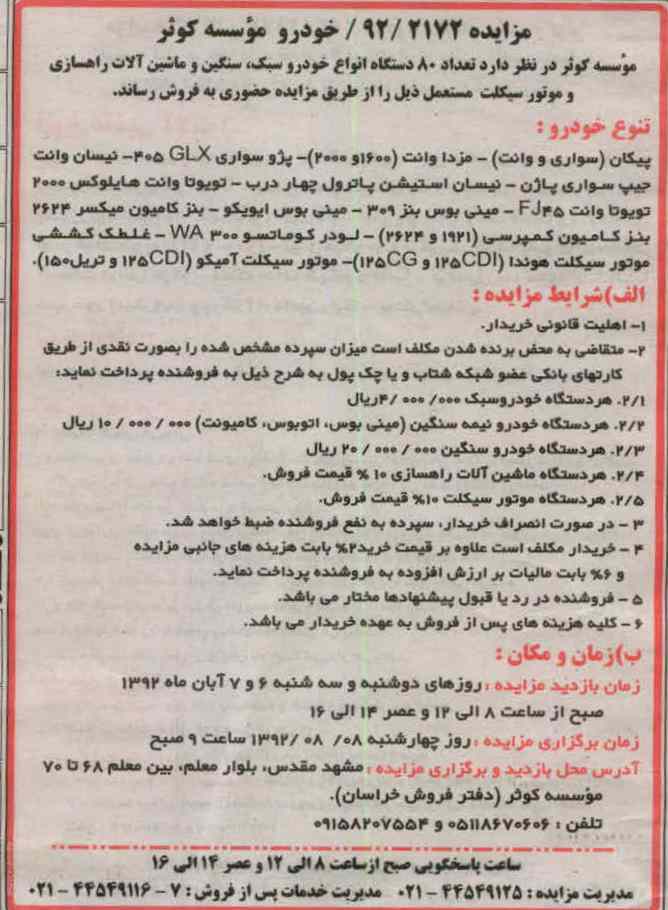 مزایده ۲۱۷۲ /۹۲ / خودرو مؤسسه کوثر
مؤسسه کوثر در نظر دارد تعداد ۸۰ دستگاه انواع خودرو سبک، سنگین و ماشین آلات راهسازی
و موتور سیکلت مستعمل ذیل را از طریق مزایده حضوری به فروش رساند.
تنوع خودرو :
پیکان (سواری و وانت) – مزدا وانت (۱۶۰۰و ۲۰۰۰)– پژو سواری ۴۰۵ GLX– نیسان وانت
جیپ سواری پاژن – نیسان استیشن پاترول چهار درب – تویوتا وانت هایلوکس ۲۰۰۰
تویوتا وانت FJ۴۵ – مینی بوس بنز ۳۰۹ – مینی بوس ایویکو – بنز کامیون میکسر ۲۶۲۴
بنز کامیون کمپرسی (۱۹۲۱ و ۲۶۲۴) – لودر کوماتسو ۳۰۰ WA – غلطک کششی
موتور سیکلت هوندا (۱۲۵CDI و ۱۲۵CG)– موتور سیکلت آمیکو (۱۲۵CDI و تریل۱۵۰).
الف)شرایط مزایده :
۱– اهلیت قانونی خریدار.
۲– متقاضی به محض برنده شدن مکلف است میزان سپرده مشخص شده را بصورت نقدی از طریق
کارتهای بانکی عضو شبکه شتاب و یا چک پول به شرح ذیل به فروشنده پرداخت نماید:
۲/۱. هردستگاه خودروسبک ۰۰۰/ ۰۰۰ /۴ریال
۲/۲. هردستگاه خودرو نیمه سنگین (مینی بوس، اتوبوس، کامیونت) ۰۰۰ / ۰۰۰ / ۱۰ ریال
۲/۳. هردستگاه خودرو سنگین ۰۰۰ / ۰۰۰ / ۲۰ ریال
۲/۴. هردستگاه ماشین آلات راهسازی ۱۰ % قیمت فروش.
۲/۵. هردستگاه موتور سیکلت ۱۰% قیمت فروش.
۳ – در صورت انصراف خریدار، سپرده به نفع فروشنده ضبط خواهد شد.
۴ – خریدار مکلف است علاوه بر قیمت خرید۲% بابت هزینه های جانبی مزایده
و ۶% بابت مالیات بر ارزش افزوده به فروشنده پرداخت نماید.
۵ – فروشنده در رد یا قبول پیشنهادها مختار می باشد.
۶ – کلیه هزینه های پس از فروش به عهده خریدار می باشد.
ب)زمان و مکان :
زمان بازدید مزایده : روزهای دوشنبه و سه شنبه ۶ و ۷ آبان ماه ۱۳۹۲
صبح از ساعت ۸ الی ۱۲ و عصر ۱۴ الی ۱۶
زمان برگزاری مزایده : روز چهارشنبه ۰۸/ ۰۸ /۱۳۹۲ ساعت ۹ صبح
آدرس محل بازدید و برگزاری مزایده : مشهد مقدس، بلوار معلم، بین معلم ۶۸ تا ۷۰
مؤسسه کوثر (دفتر فروش خراسان).
تلفن : ۰۵۱۱۸۶۷۰۶۰۶ و ۰۹۱۵۸۲۰۷۵۵۴
ساعت پاسخگویی صبح ازساعت ۸ الی ۱۲ و عصر ۱۴ الی ۱۶
مدیریت مزایده : ۴۴۵۴۹۱۲۵ – ۰۲۱ مدیریت خدمات پس از فروش : ۷ – ۴۴۵۴۹۱۱۶ – ۰۲۱